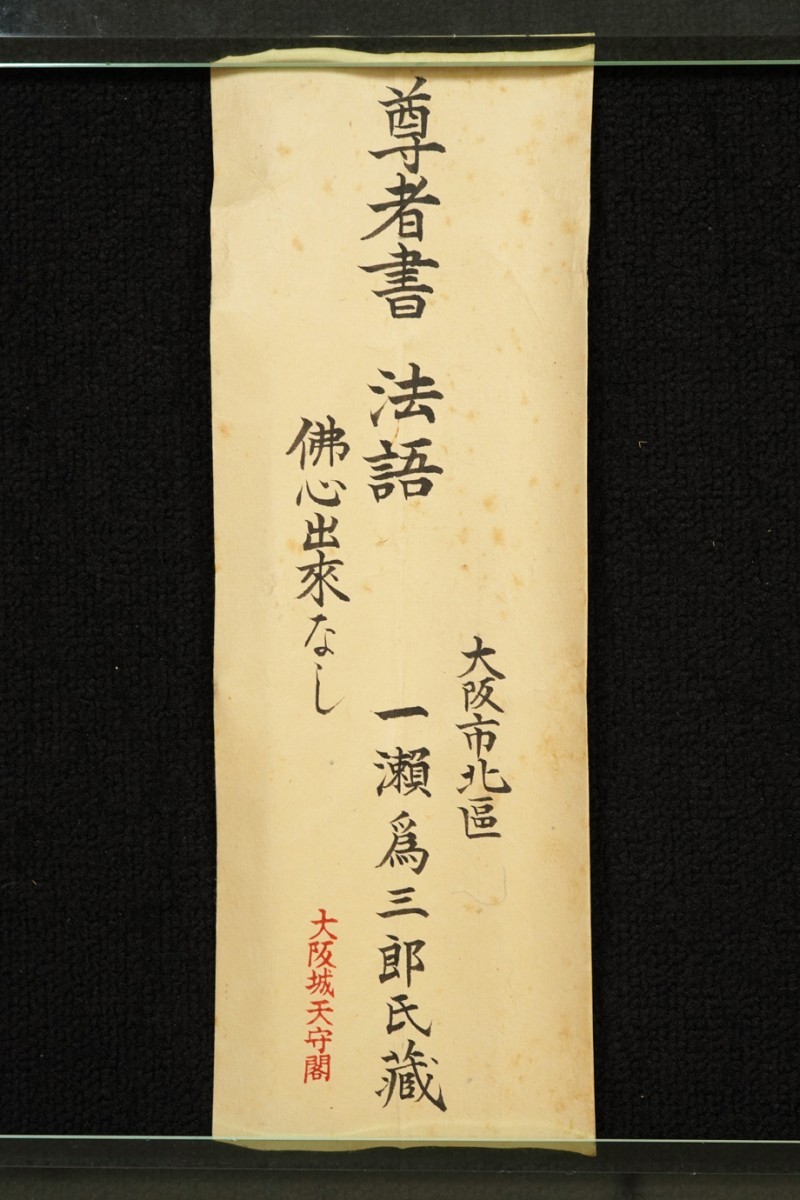 大阪市北區
尊者書 法語 一瀬爲三郎氏藏
佛心出來なし
大阪城天守閣